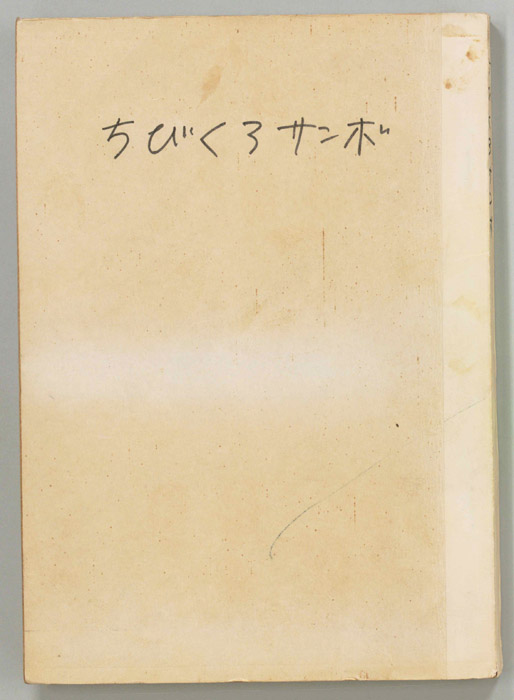 ちびくろサンボ